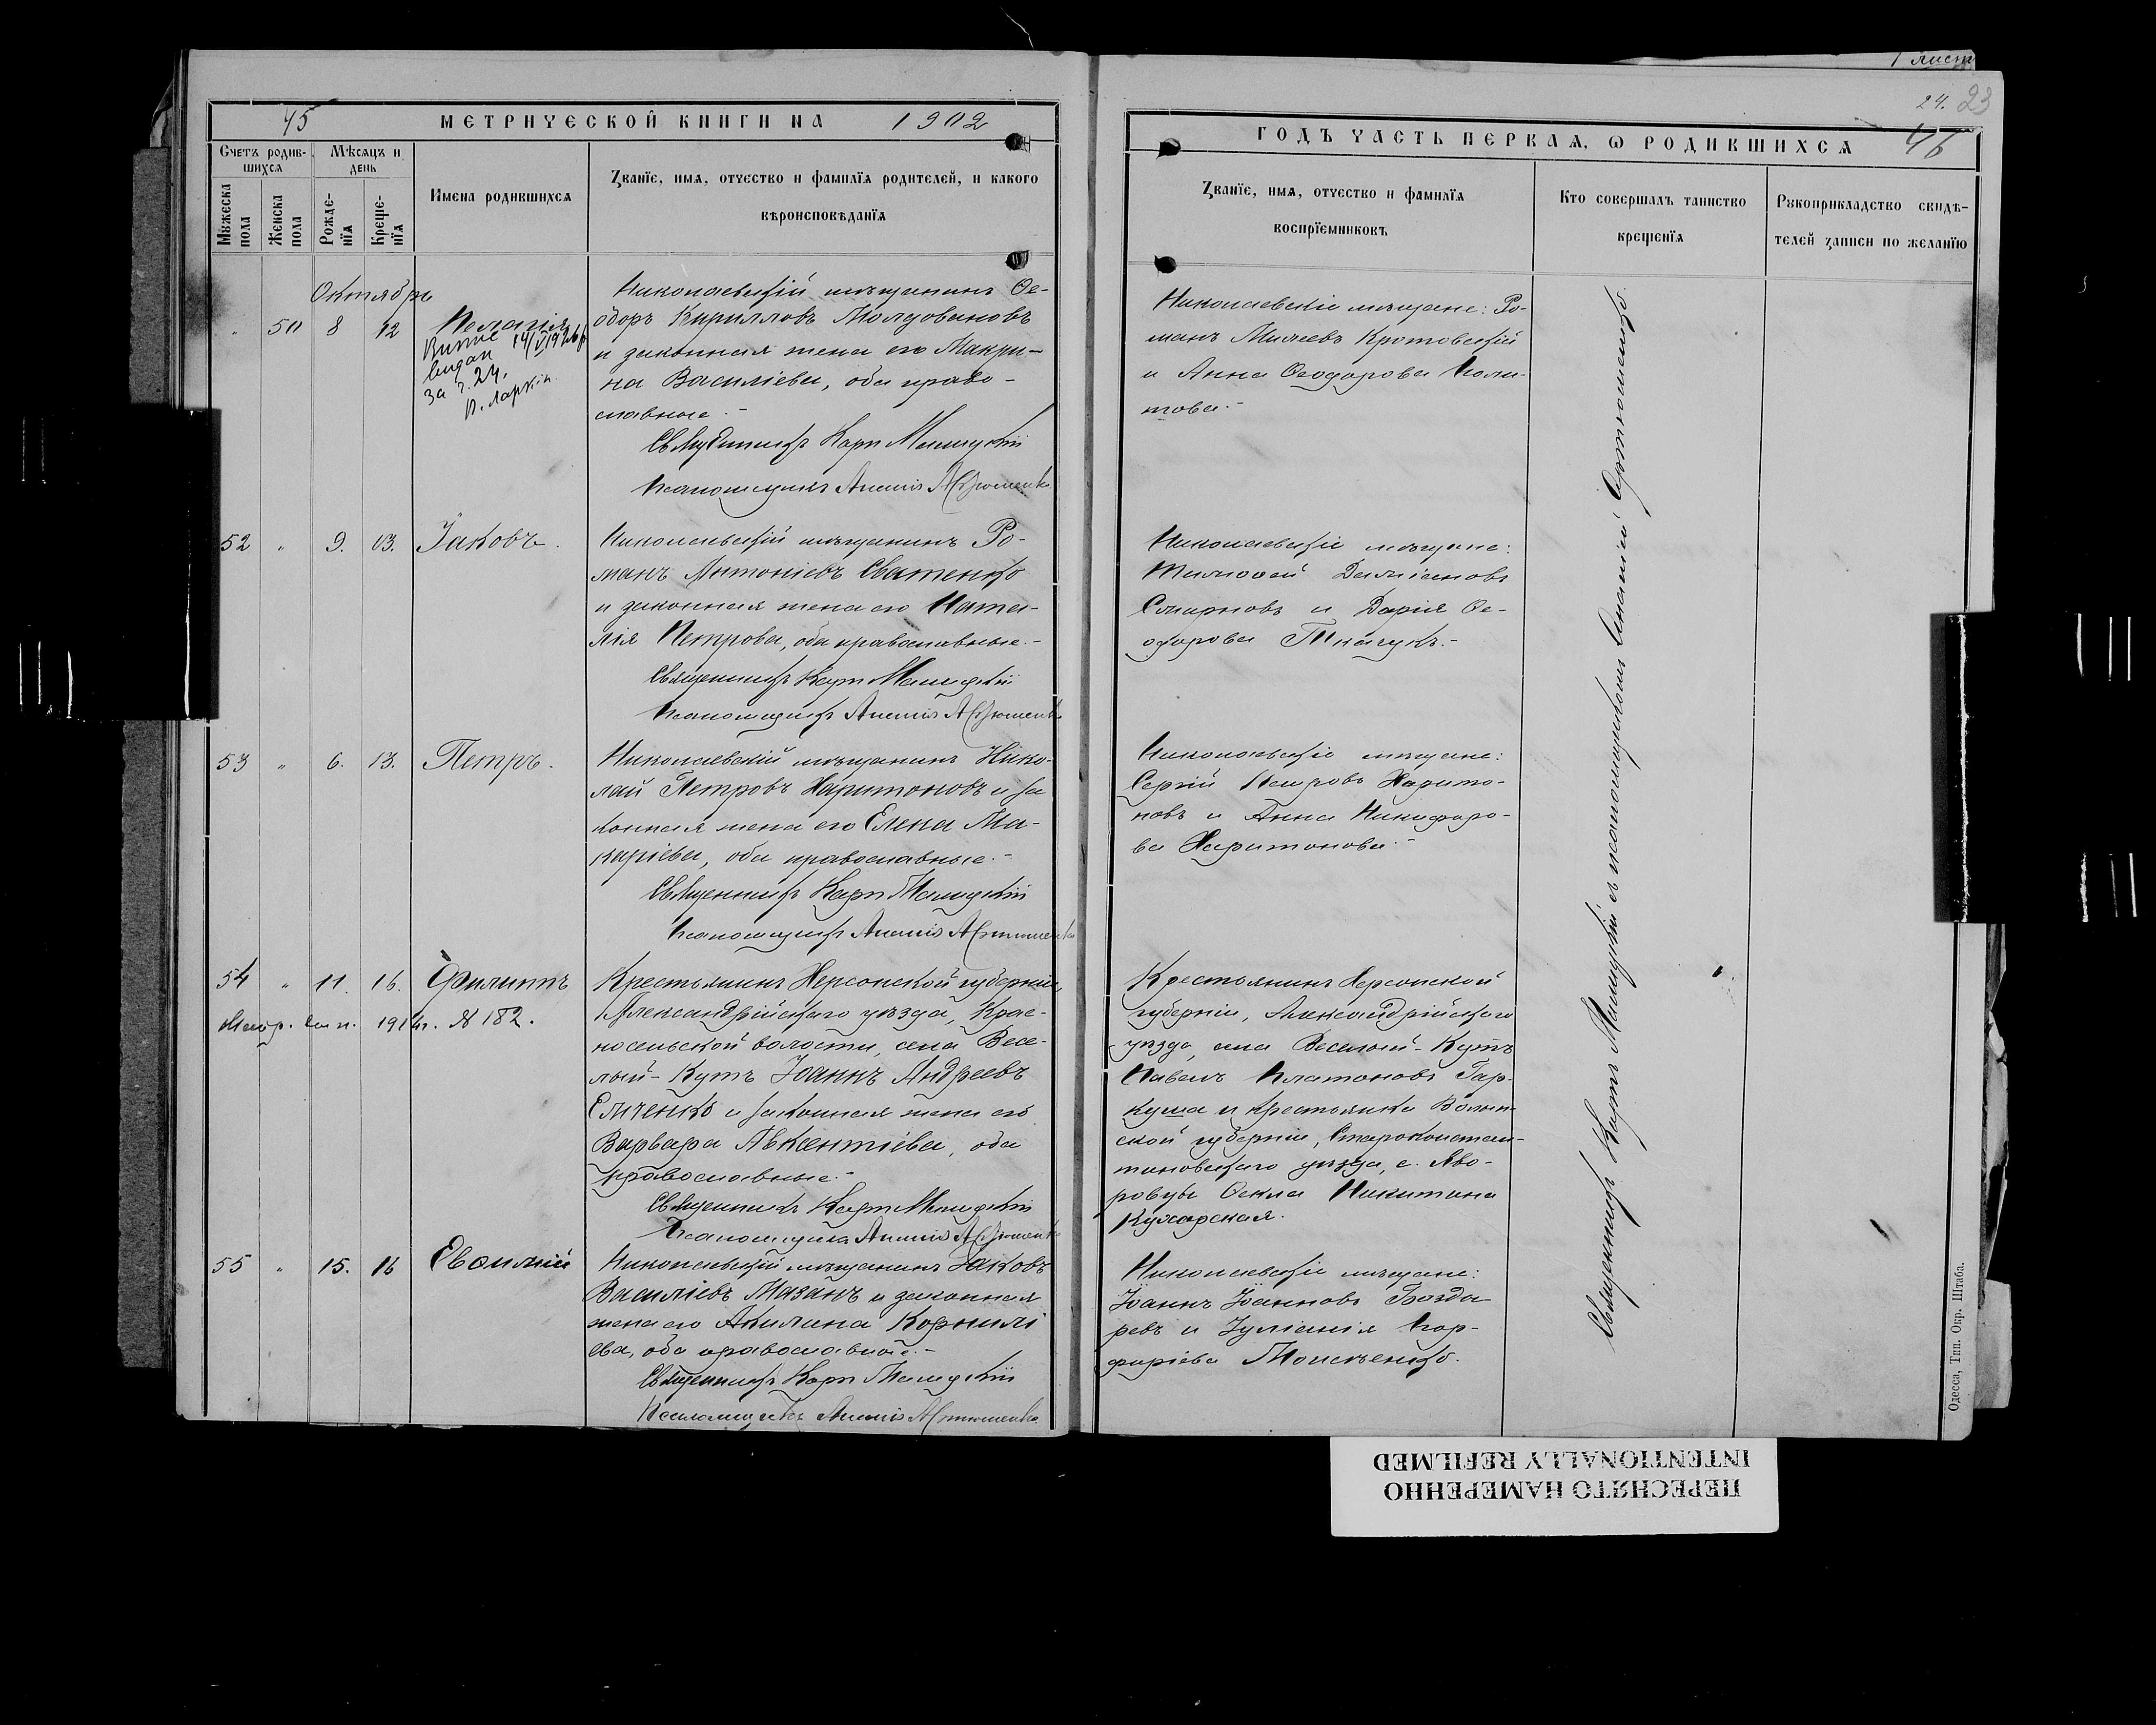 1 лист
24. 23
45
МЕТРИЧЕСКОЙ КНИГИ НА 1902
Счетъ родив-
шихся
Мѣсяцъ и
день
Мужеска
пола
Женска
пола
Рожде-
нїя
Креще-
нїя
Имена родившихся
Званїе, имя, отчество и фамилїя родителей, и какого
вѣроисповѣданїя
Октябрь
" 50 8 12 Пелагія
14/V 1926
видан
за г. 24.
Николаевскій мѣщанинъ Ѳе-
одоръ Кирилловъ Молдовановъ
и законная жена его Макри-
на Василіева, оба право-
славные.-
Священникъ Карп
Псаломщикъ Ананія Артюшенко
52 " 9. 13. Іаковъ.
Николаевскій мѣщанинъ Ро-
манъ Антоніевъ Сватенко
и законная жена его Ната-
лія Петрова, оба православные.-
Священникъ Карп
Псаломщикъ Ананія Артюшенко
53 " 6. 13. Петръ.
Николаевскій мѣщанинъ Нико-
лай Петровъ Харитоновъ и за
конная жена его Елена Ма-
каріева, оба православные.-
Священникъ Карп
Псаломщикъ Ананія Артюшенко
54 " 11. 16. Филиппъ
1914г. № 182.
Крестьянинъ Херсонской губерніи,
Александрійскаго уѣзда, Крас-
носельской волости, села Весе-
лый-Кутъ Іоаннъ Андреевъ
Ельченко и законная жена его
Варвара Авксентіева, оба
православные.-
Священникъ Карп
Псаломщикъ Ананія Артюшенко
55 " 15. 16 Евсилий
Николаевскій мѣщанинъ Іаковъ
Василіевъ Мазанъ и законная
жена его Акилина Корнилі
ева, оба православные.-
Священникъ Карп
Псаломщикъ Ананія Артюшенко
ГОДЪ ЧАСТЬ ПЕРВАЯ, Ѡ РОДИВШИХСЯ 46
Званїе, имя, отчество и фамилїя
воспрїемниковъ
Кто совершалъ таинство
крещенїя
Рукоприкладство свидѣ-
телей записи по желанїю
Николаевскіе мѣщане: Ро-
манъ Кротовскій
и Анна Ѳеодорова Поли-
това.-
Николаевскіе мѣщане:
Тимоѳей Даміановъ
Смирновъ и Дарія Ѳе-
одорова Ткачукъ.-
Николаевскіе мѣщане:
Сергій Петровъ Харито-
новъ и Анна Никифоро-
ва Харитонова.-
Крестьянинъ Херсонской
губерніи, Александрійскаго
уѣзда, села Веселый-Кутъ
Павелъ Платоновъ Гар-
куша и крестьянка Волын-
ской губерніи, Староконстан-
тиновскаго уѣзда, с. Яво-
ровцы Ѳекла Никитина
Кухарская.
Николаевскіе мѣщане:
Іоаннъ Іоанновъ Бозда
ревъ и Іуліанія Пор-
фиріева Моисеенко.
Священникъ Карпъ съ псаломщикомъ Ананіею Артюшенко.
Одесса, Тип. Окр. Штаба.
ПЕРЕСНЯТО НАМЕРЕННО
INTENTIONALLY REFILMED